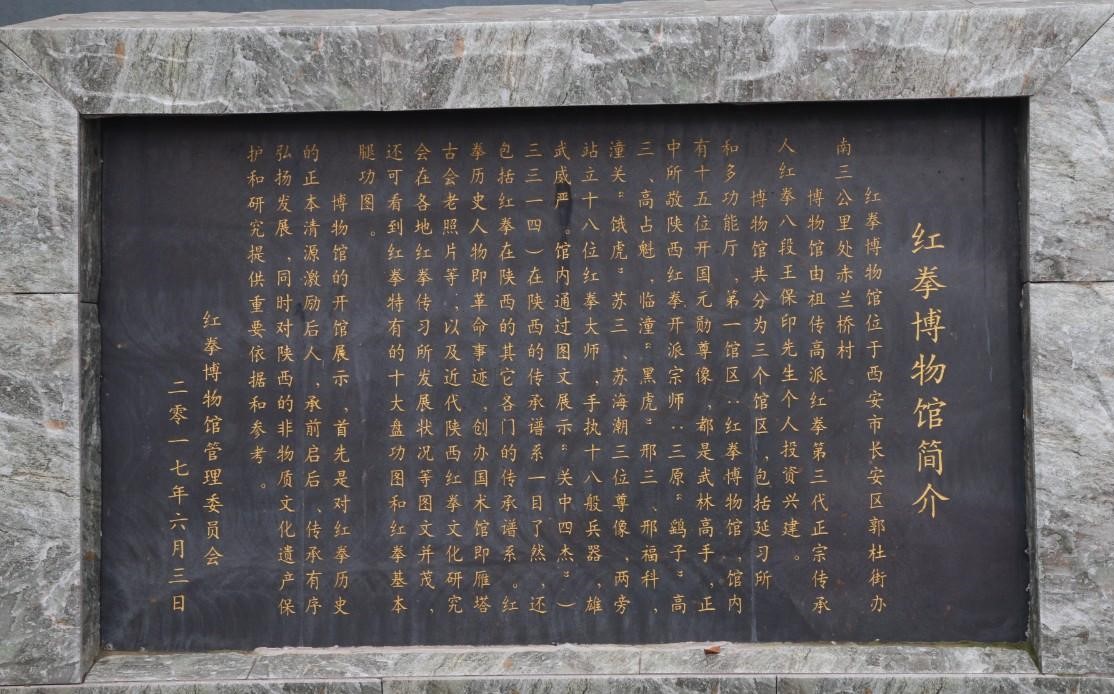 红拳博物馆简介
红拳博物馆位于西安市长安区郭杜街办
南三公里处赤兰桥村
博物馆由祖传高派红拳第三代正宗传承
人红拳八段王保印先生个人投资兴建。
博物馆共分为三个馆区，包括延习所
和多功能厅，第一馆区：红拳博物馆，馆内
有十五位开国元勋尊像，都是武林高手，正
中所敬陕西红拳开派宗师：三原“鹞子”高
三、高占魁，临潼“黑虎”邢三、邢福科，
潼关“饿虎”苏三、苏海潮三位尊像，两旁
站立十八位红拳大师，手执十八般兵器，雄
武威严。馆内通过图文展示“关中四杰”（
三三一四）在陕西的传承谱系一目了然，还
包括红拳在陕西的其它各门的传承谱系。红
拳历史人物即革命事迹，创办国术馆即雁塔
古会老照片等，以及近代陕西红拳文化研究
会在各地红拳传习所发展状况等图文并茂，
还可看到红拳特有的十大盘功图和红拳基本
腿功图。
博物馆的开馆展示，首先是对红拳历史
的正本清源激励后人，承前启后、传承有序
弘扬发展，同时对陕西的非物质文化遗产保
护和研究提供重要依据和参考。
红拳博物馆管理委员会
二零一七年六月三日